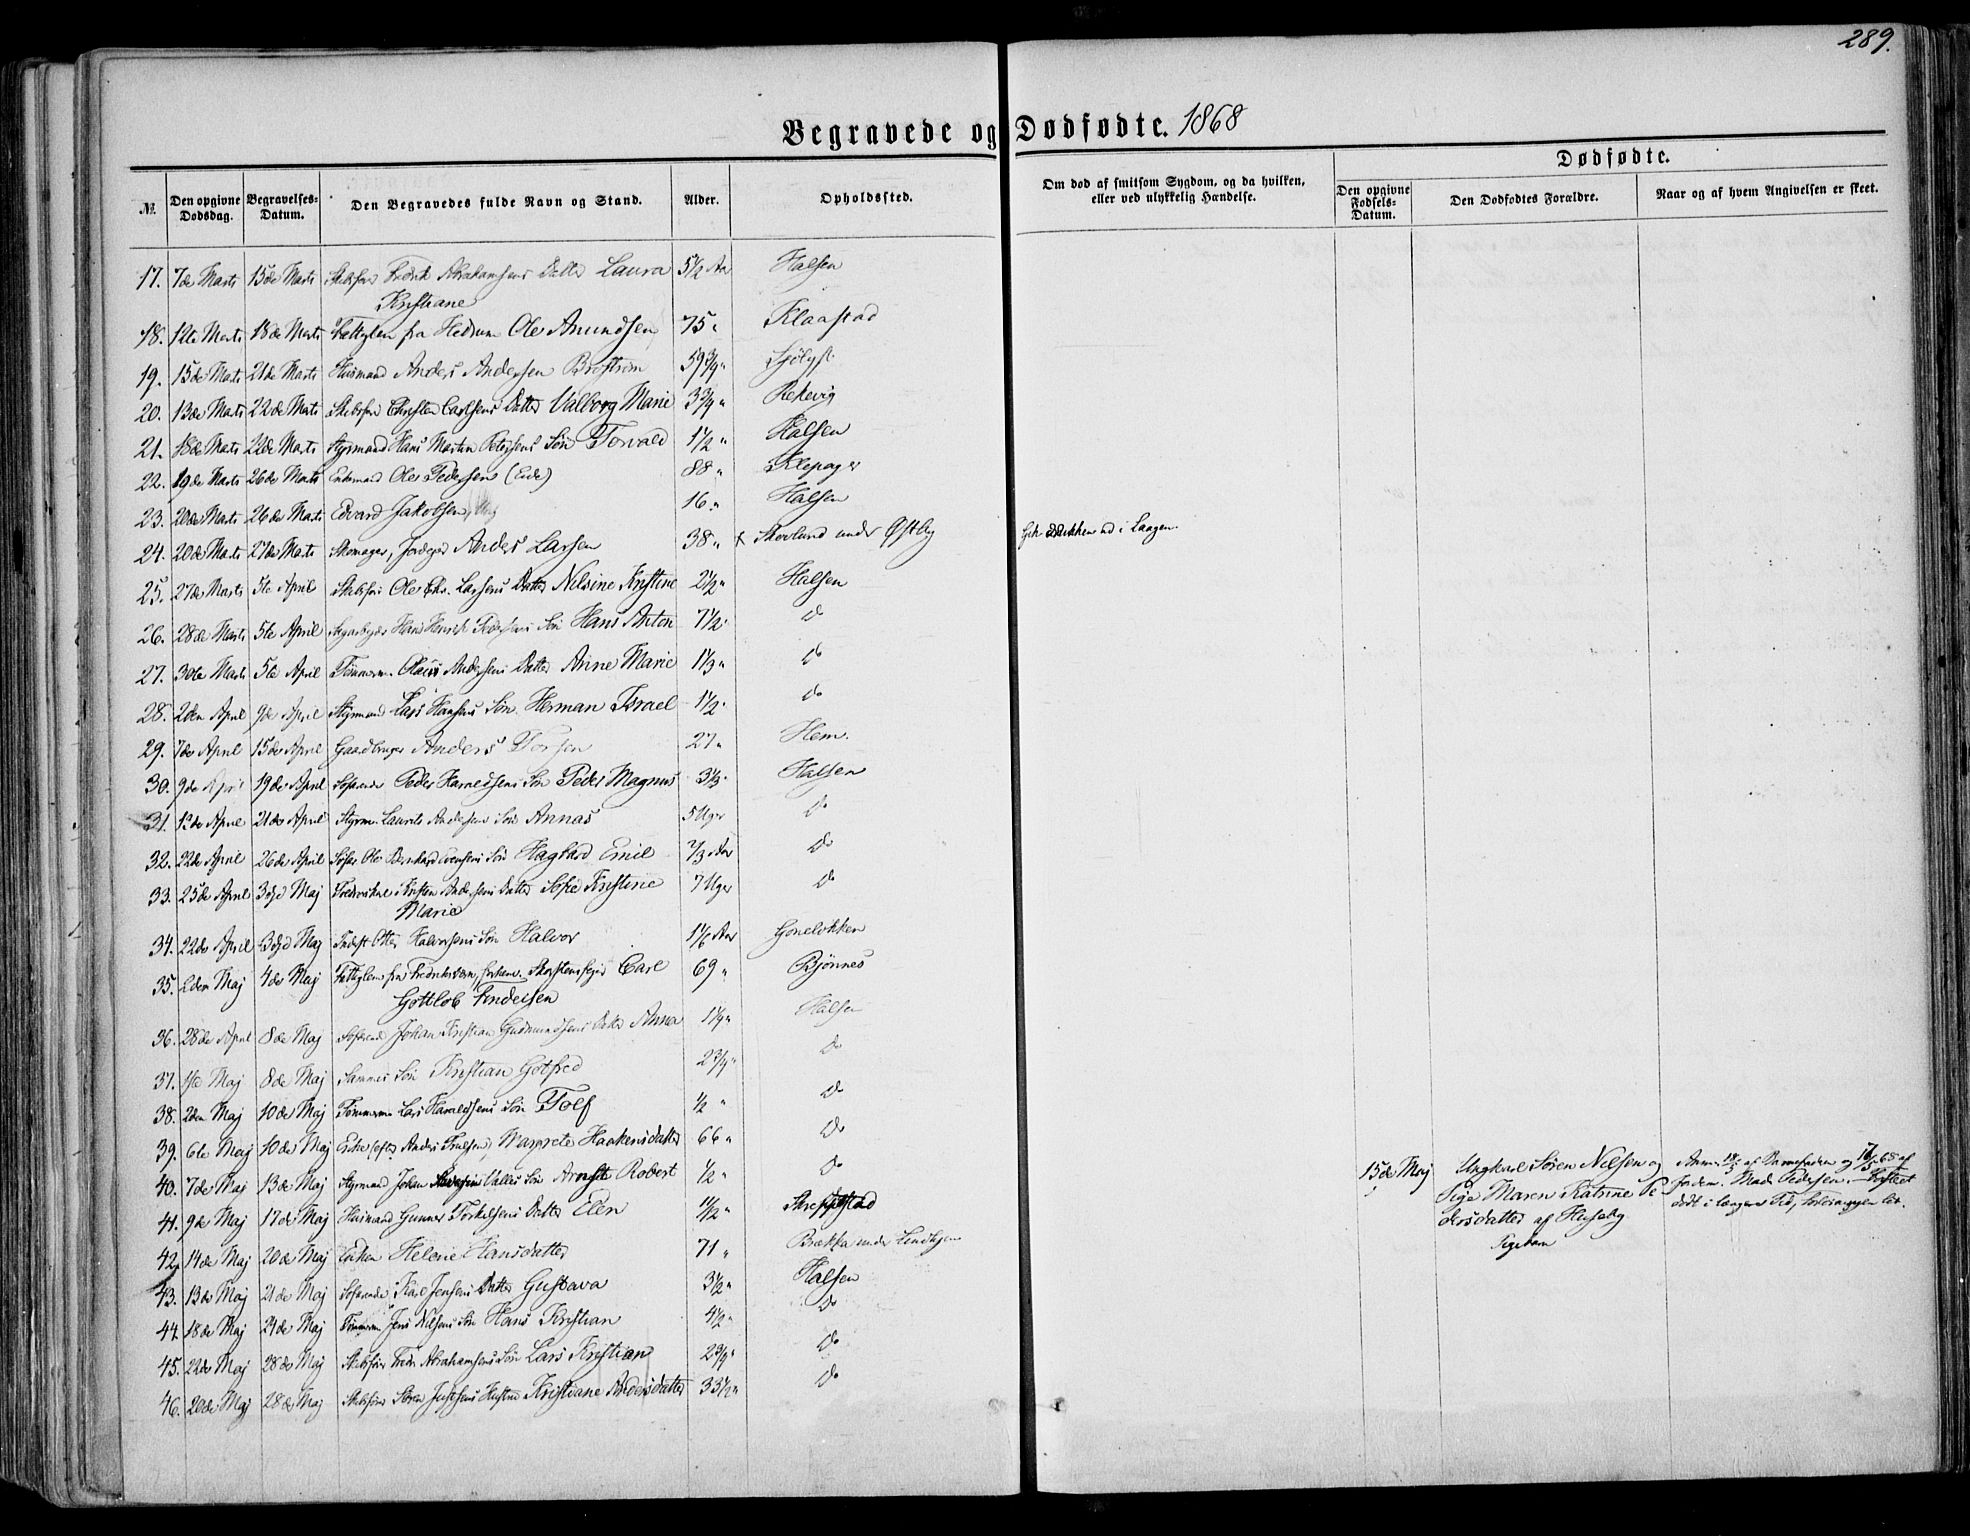 289.
Begravede og Dødfødte. 1868
Dødfødte.
№ Den opgivne Dødsdag. Begravelses-Datum. Den Begravedes fulde Navn og Stand. Alder. Opholdssted. Om død af smitsom Sygdom, og da hvilken, eller ved ulykkelig Hændelse. Den opgivne Fødsels-Datum. Den Dødfødtes Forældre. Naar og af hvem Angivelsen er skeet.
17. 7de Marts 15de Marts Skibsfør Fredrik Abrahamsens Datter Laura 5 1/2 Aar Halsen
Kristiane
18. 12te Marts 18de Marts Fattiglem fra Hedrum Ole Amundsen 75 " Klaastad
19. 15de Marts 21de Marts Husmand Anders Andersen Broström 59 3/4 " Sjölyst
20. 13de Marts 22de Marts Skibsfør Christen Carlsens Datter Valborg Marie 3 3/4 " Rekevig
21. 18de Marts 22de Marts Styrmand Hans Martin Petersens Søn Torvald 1 1/2 " Halsen
22. 19de Marts 26de Marts Enkemand Ole Pedersen (Eide) 88 " Klepager
23. 20de Marts 26de Marts Edvard Jakobsen 16 " Halsen
24. 20de Marts 27de Marts Skomager, Anders Larsen 38 " x Skovlund under Østby Gik Drukken ud i Laagen.
25. 27de Marts 5te April Skibsfør Ole Chr. Larsens Datter Nilsine Kristine 2 1/2 " Halsen
26. 28de Marts 5te April Hans Henrik Pedersens Søn Hans Anton 7 1/2 " Do
27. 30te Marts 5te April Tømmerm. Olaus Andersens Datter Anne Marie 1 1/3 " Do
28. 2den April 9de April Styrmand Lars Hansens Søn Herman Israel 1 1/2 " Do
29. 7de April 15de April Gaardbruger Anders 27 " Hem.
30. 9de April 19de April Søfarende Peder Haraldsens Søn Peder Magnus 3 1/3 " Halsen
31. 13de April 21de April Styrm. Laurits Andersens Søn Annas 5 Uger Do
32. 22de April 26de April Ole Bernhard Evensens Søn Hagbard Emil 2/3 Aar Do
33. 25de April 3die Maj Kristen Andersens Datter Sofie Kristine 7 Uger Do
Marie
34. 22de April 3die Maj Otter Halvorsens Søn Halvor 1 1/6 Aar Goneløkken
35. 2den Maj 4de Maj Fattiglem fra Fredriksværn, Carl 69 " Bjønnes
Gottlob Findeisen
36. 28de April 8de Maj Søfarende Johan Kristian Gudmundsens Datter Anna 1 1/4 " Halsen
37. 1ste Maj 8de Maj Sammes Søn Kristian Gotfred 2 3/4 " Do
38. 2den Maj 10de Maj Tømmerm. Lars Haraldsens Søn Tolf 1/2 " Do
39. 6te Maj 10de Maj Enke (efter Anders) Margrete Haakensdatter 66 " Do
40. 7de Maj 13de Maj Styrmand Johan Valles Søn Robert 1/2 " Do
41. 9de Maj 17de Maj Husmand Gunner Torkelsens Datter Elen 1 1/2 "
42. 14de Maj 20de Maj Enken Helene Hansdatter 71 " Brækka under
43. 13de Maj 21de Maj Søfarende Karl Jensens Datter Gustava 3 1/2 " Halsen
44. 18de Maj 24de Maj Tømmerm Jens Nilsens Søn Hans Kristian 4 1/2 " Do
45. 22de Maj 28de Maj Skibsfør Fredr. Abrahamsens Søn Lars Kristian 2 3/4 " Do
46. 20de Maj 28de Maj Skibsfør Søren Hustru Kristiane Andersdatter 33 1/2 " Do
15de Maj Ungkarl Søren Nilsen og
Pige Maren Katrine Pe-
dersdatter af Huseby
Pigebarn
Anm. af Barnefaderen og
Mad. Pedersen.
dødt i længere Tid,